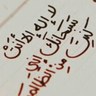 لا إله إلا أنت
سبحانك إني
من الظالمين